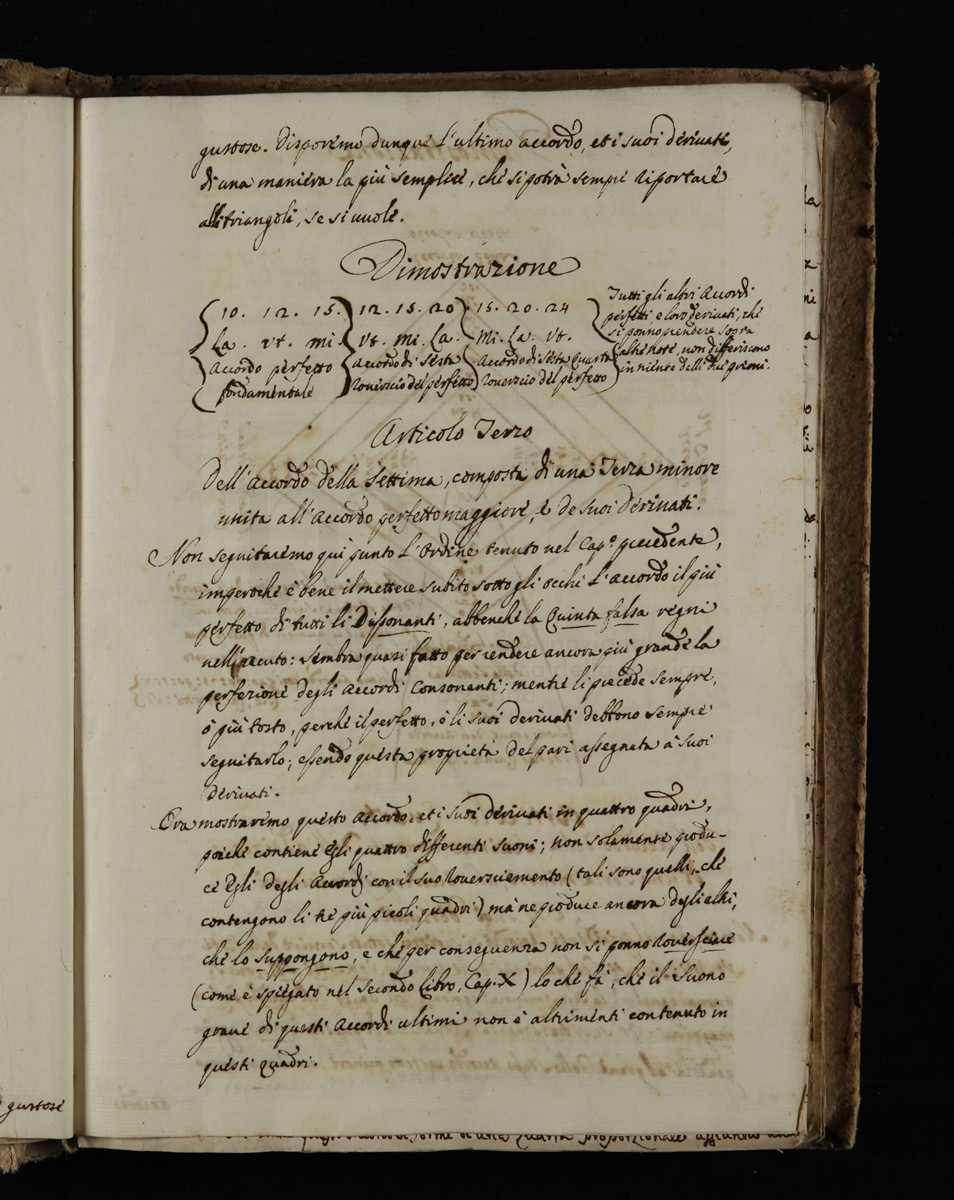 gustose. Disporemo dunque l'ultimo accordo, et i suoi derivati,
di una maniera la più semplice, che si potrà sempre riportare
alli triangoli, se si vuole.
Dimostrazione
10. 12. 15. 12. 15. 20 15. 20. 24
La. vt. mi vt. mi. la. Mi. La. vt.
Accordo perfetto fondamentale
accordo di sesta roverscio del perfetto
Accordo di sesta quarta roverscio del perfetto
Tutti gli altri Accordi
perfetti e loro derivati, che
si ponno prendere sopra
altre note, non differiscono
in niente delli due primi.
Articolo Terzo
Dell'Accordo della Settima, composta di una Terza minore
unita all'Accordo perfetto maggiore, e de suoi derivati.
Non seguitaremo qui punto l'ordine tenuto nel Cap.º precedente,
imperochè è bene il mettere subito sotto gli occhi l'accordo il più
perfetto di tutti li Dissonanti, abbenchè la Quinta falsa regni
nell'acuto: sembra quasi fatto per rendere ancora più grande la
perfezione degli Accordi Consonanti; mentre li precede sempre,
ò più tosto, perchè il perfetto, ò li suoi derivati debbono sempre
seguitarlo; essendo questa proprietà del pari assegnata à suoi
derivati.
Ora mostraremo questo Accordo, et i suoi derivati in quattro quadri,
poichè contiene Egli quattro differenti suoni; non solamente produ-
ce Egli degli Accordi con il suo roversciamento (tali sono quelli, che
contengono li tre più picoli quadri) mà ne produce ancora degli altri,
che lo suppongono, e che per conseguenza non si ponno roversciare
(come è spiegato nel secondo Libro, Cap. X) lo che fà, che il suono
grave di questi Accordi ultimi non è altrimenti contenuto in
questi quadri.
gustose